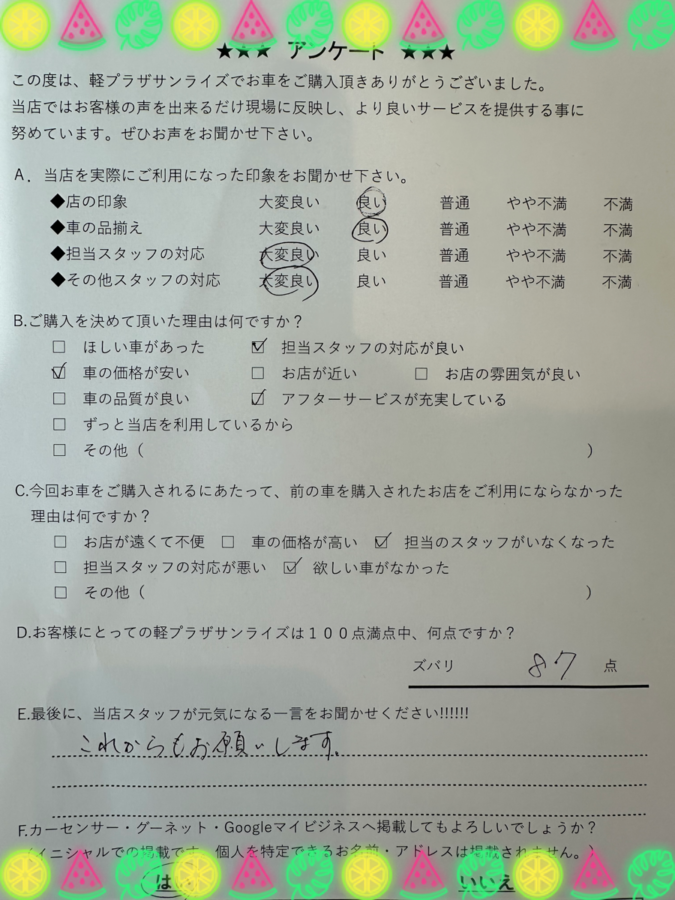 ★★★ アンケート ★★★
この度は、軽プラザサンライズでお車をご購入頂きありがとうございました。
当店ではお客様の声を出来るだけ現場に反映し、より良いサービスを提供する事に
努めています。ぜひお声をお聞かせ下さい。
A．当店を実際にご利用になった印象をお聞かせ下さい。
◆店の印象 大変良い 良い 普通 やや不満 不満
◆車の品揃え 大変良い 良い 普通 やや不満 不満
◆担当スタッフの対応 大変良い 良い 普通 やや不満 不満
◆その他スタッフの対応 大変良い 良い 普通 やや不満 不満
B.ご購入を決めて頂いた理由は何ですか？
□ ほしい車があった ☑ 担当スタッフの対応が良い
☑ 車の価格が安い □ お店が近い □ お店の雰囲気が良い
□ 車の品質が良い ☑ アフターサービスが充実している
□ ずっと当店を利用しているから
□ その他（ ）
C.今回お車をご購入されるにあたって、前の車を購入されたお店をご利用にならなかった
理由は何ですか？
□ お店が遠くて不便 □ 車の価格が高い ☑ 担当のスタッフがいなくなった
□ 担当スタッフの対応が悪い ☑ 欲しい車がなかった
□ その他（ ）
D.お客様にとっての軽プラザサンライズは１００点満点中、何点ですか？
ズバリ 87 点
E.最後に、当店スタッフが元気になる一言をお聞かせください!!!!!!
これからもお願いします。
F.カーセンサー・グーネット・Googleマイビジネスへ掲載してもよろしいでしょうか？
（イニシャルでの掲載です。個人を特定できるお名前・アドレスは掲載されません。）
はい いいえ